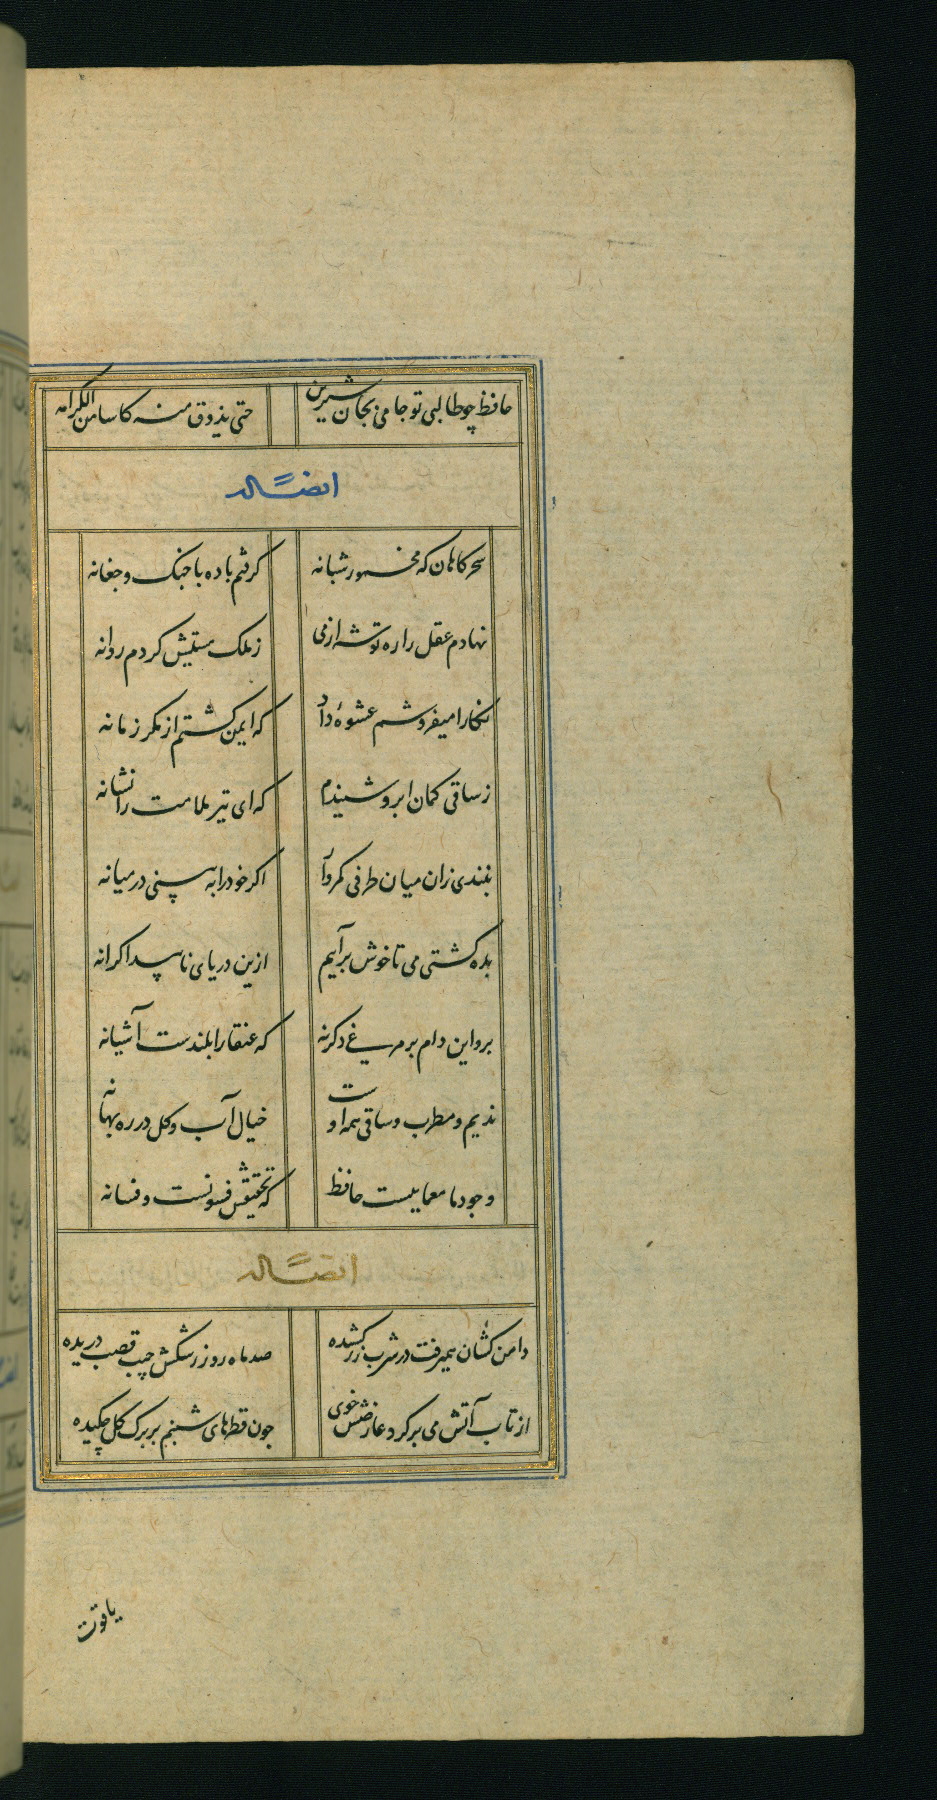 حافظ چو طالبی تو جامی بجان شیرین حتی یذوق منه کاسا من الکرامه
ایضاً له
سحر کاهان که مخمور شبانه کرفتم باده با چنک و چغانه
نهادم عقل را ره توشه از می ز ملک مستیش کردم روانه
نکار میفروشم عشوهٔ داد که ایمن کشتم از مکر زمانه
ز ساقی کمان ابرو شنیدم که ای تیر ملامت را نشانه
نبندی زان میان طرفی کمروار اکر خود را به بینی در میانه
بده کشتی می تا خوش برآیم ازین دریای ناپیدا کرانه
برو این دام بر مرغی دکر نه که عنقا را بلندست آشیانه
ندیم و مطرب و ساقی همه اوست خیال آب و کل در ره بهانه
وجود ما معماییست حافظ که تحقیقش فسونست و فسانه
ایضاً له
دامن کشان همیرفت در شرب زر کشیده صد ماه رو ز رشکش جیب قصب دریده
از تاب آتش می بر کرد عارضش خوی چون قطرهای شبنم بر برک کل چکیده
یاقوت